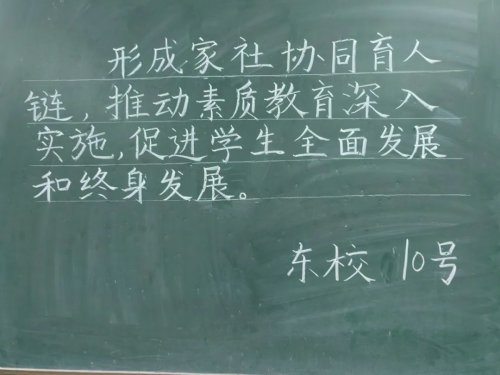 形成家社协同育人
链，推动素质教育深入
实施，促进学生全面发展
和终身发展。
东校 10号